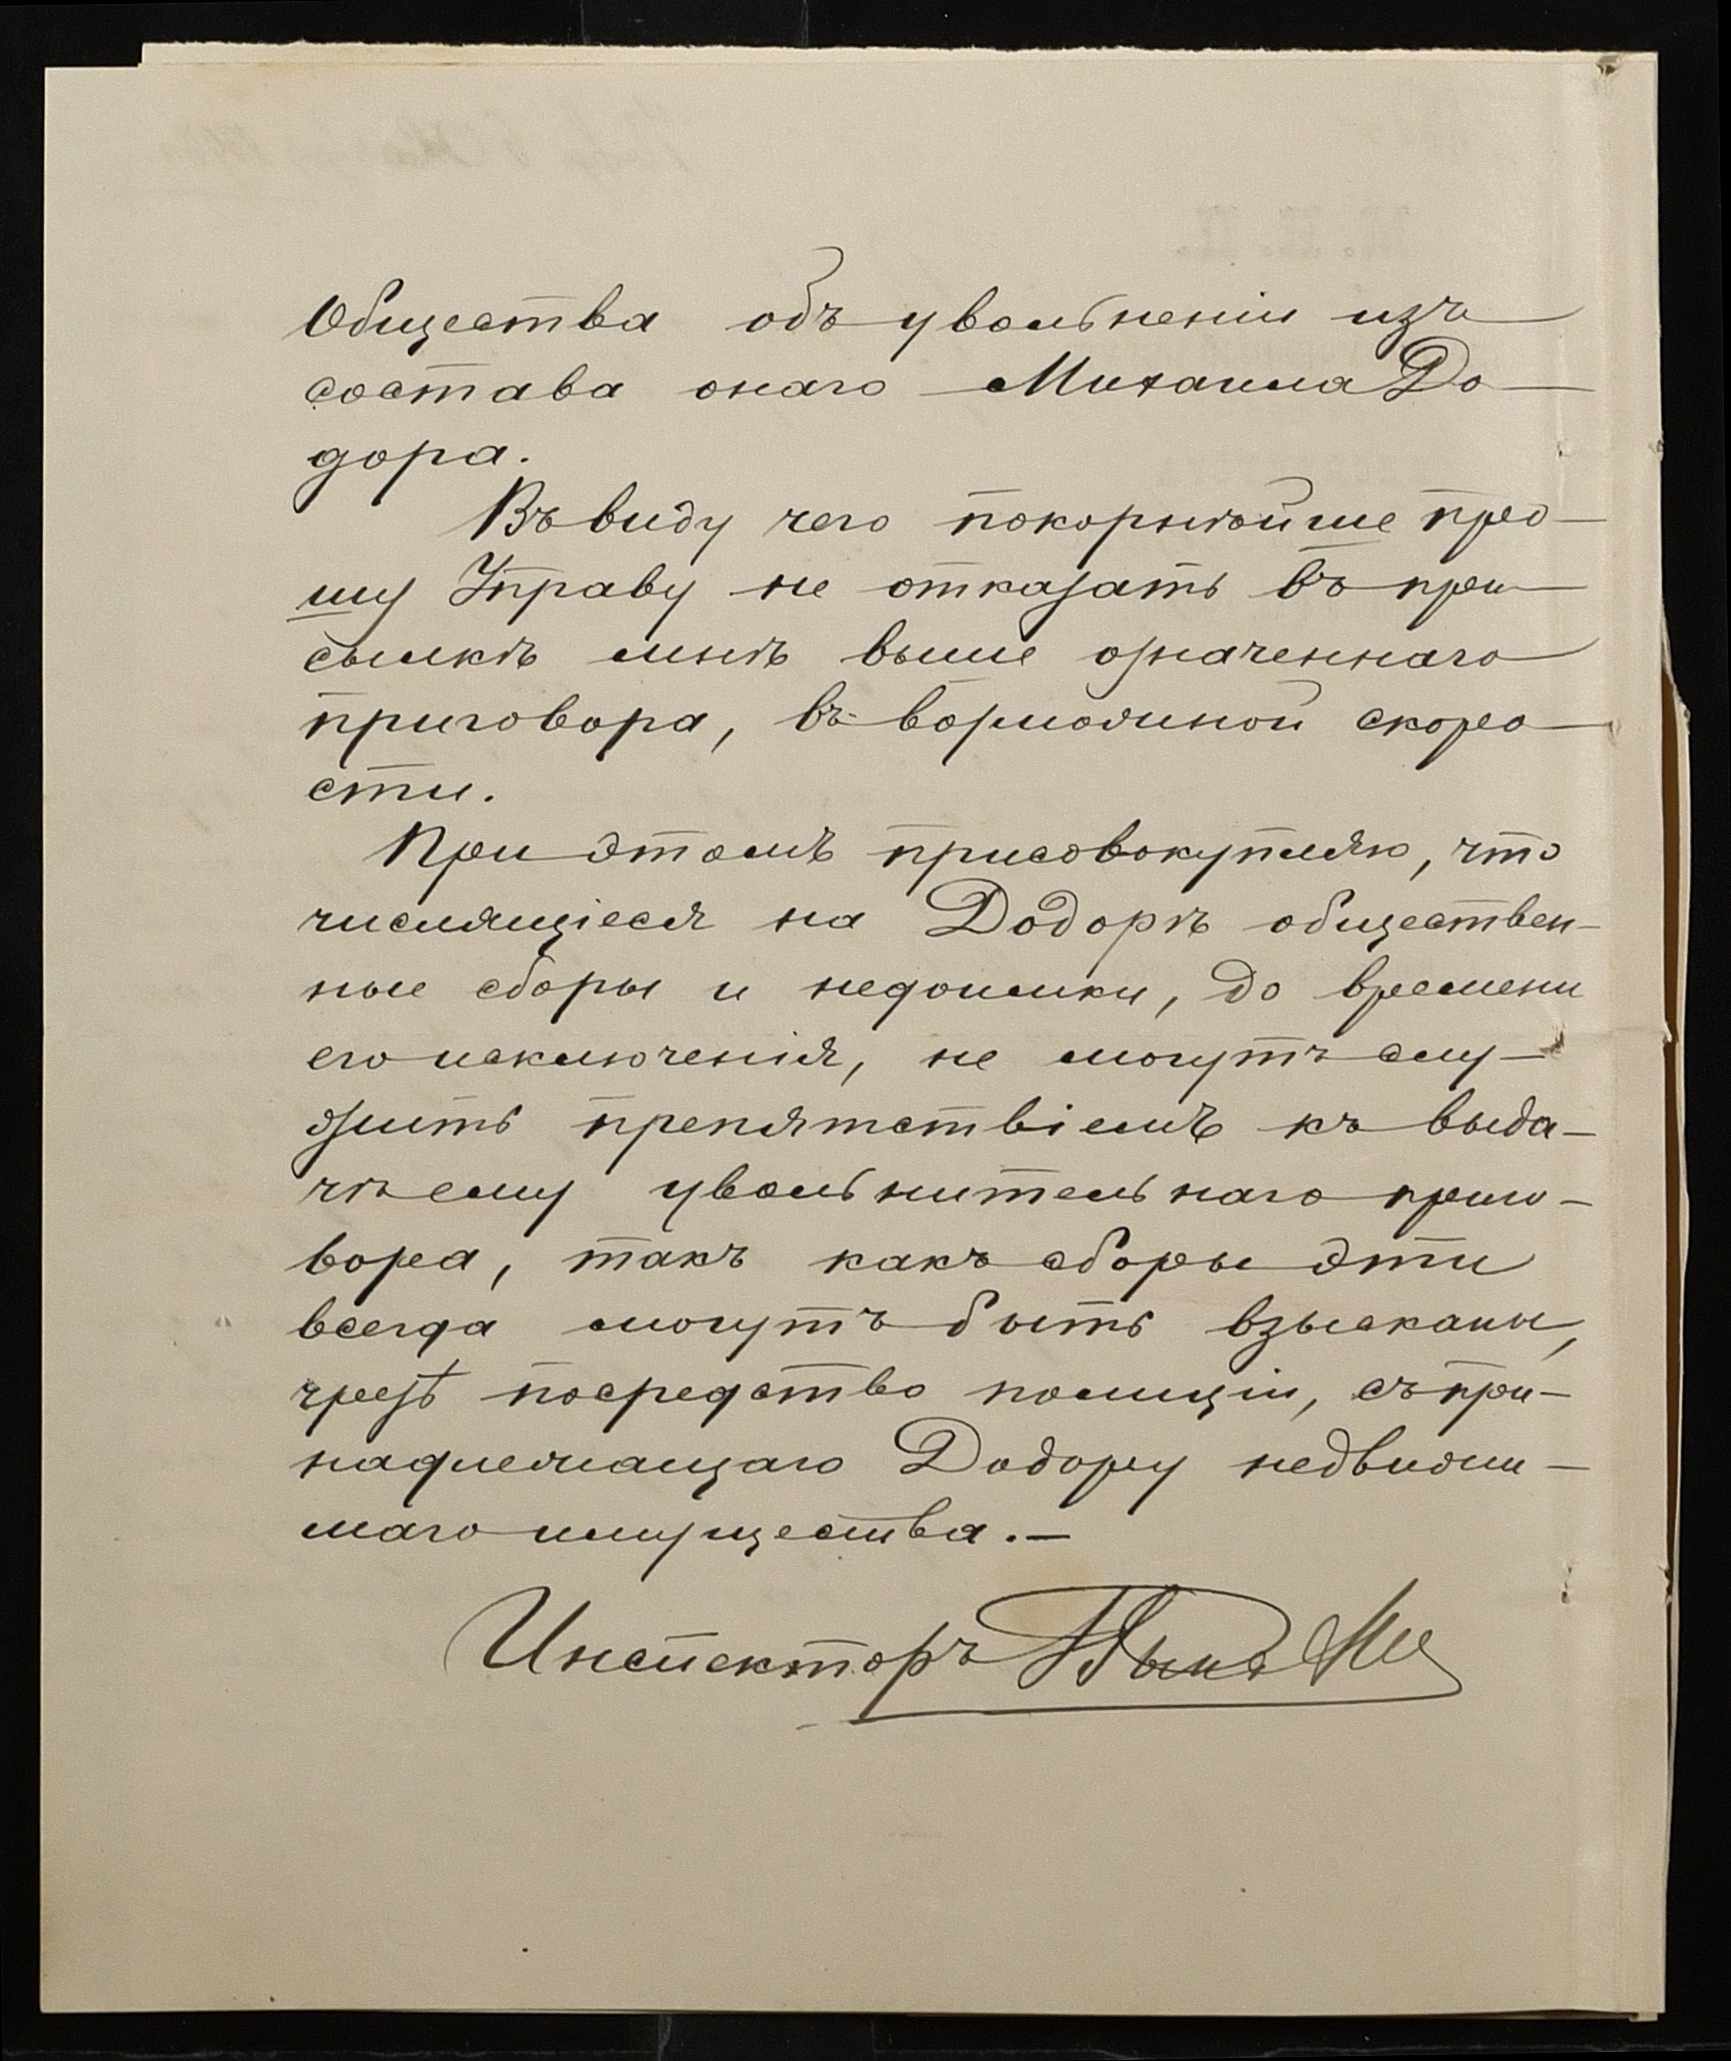 Общества объ увольненіи изъ
состава онаго Михаила До-
дора.
Въ виду чего покорнѣйше про-
шу Управу не отказать въ при-
сылкѣ мнѣ выше означеннаго
приговора, въ возможной скоро-
сти.
При этомъ присовокупляю, что
числящіеся на Додорѣ обществен-
ные сборы и недоимки, до времени
его исключенія, не могутъ слу-
жить препятствіемъ къ выда-
чѣ ему увольнительнаго приго-
вора, такъ какъ сборы эти
всегда могутъ быть взысканы,
чрезъ посредство полиціи, съ при-
надлежащаго Додору недвижи-
маго имущества.-
Инспекторъ